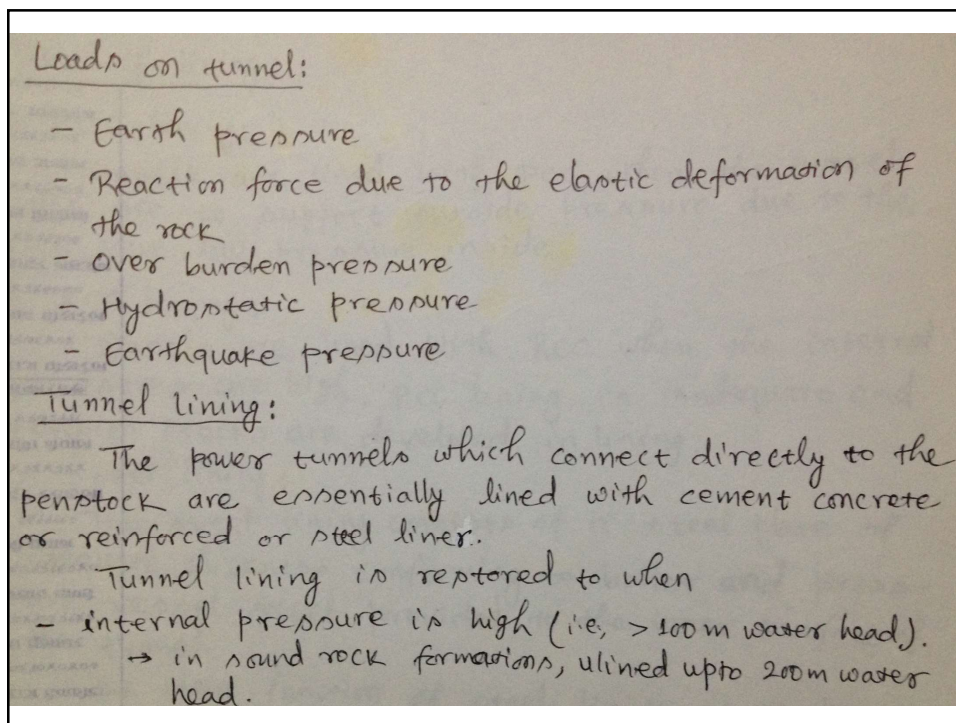 Loads on tunnel:
- Earth pressure
- Reaction force due to the elastic deformation of
the rock
- Over burden pressure
- Hydrostatic pressure
- Earthquake pressure
Tunnel lining:
The power tunnels which connect directly to the
penstock are essentially lined with cement concrete
or reinforced or steel liner.
Tunnel lining is restored to when
- internal pressure is high (i.e, > 100 m water head).
→ in sound rock formations, ulined upto 200m water
head.